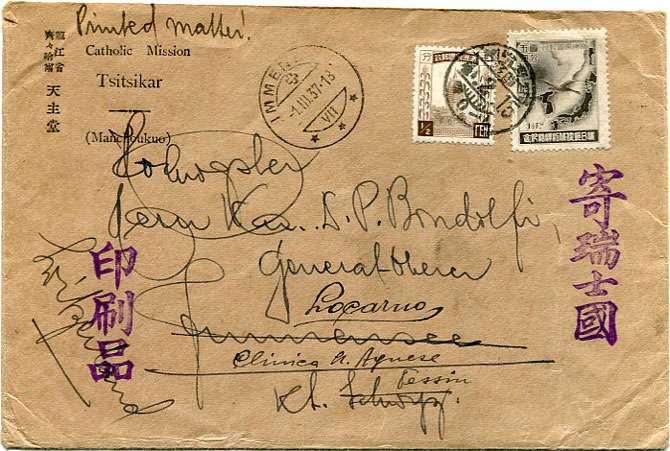 Printed matter!
龍江省
齊々哈爾
天主堂
Catholic Mission
Tsitsikar
(Manchoukuo)
IMMENSEE
-1.III.37-18
VII
分
½
FEN
15
Hochwürden
Herrn Kan. D. P. Bondolfi,
Generaloberer
Locarno
Immensee
Clinica St. Agnese
Tessin
Kt. Schwyz.
印刷品
寄瑞士國